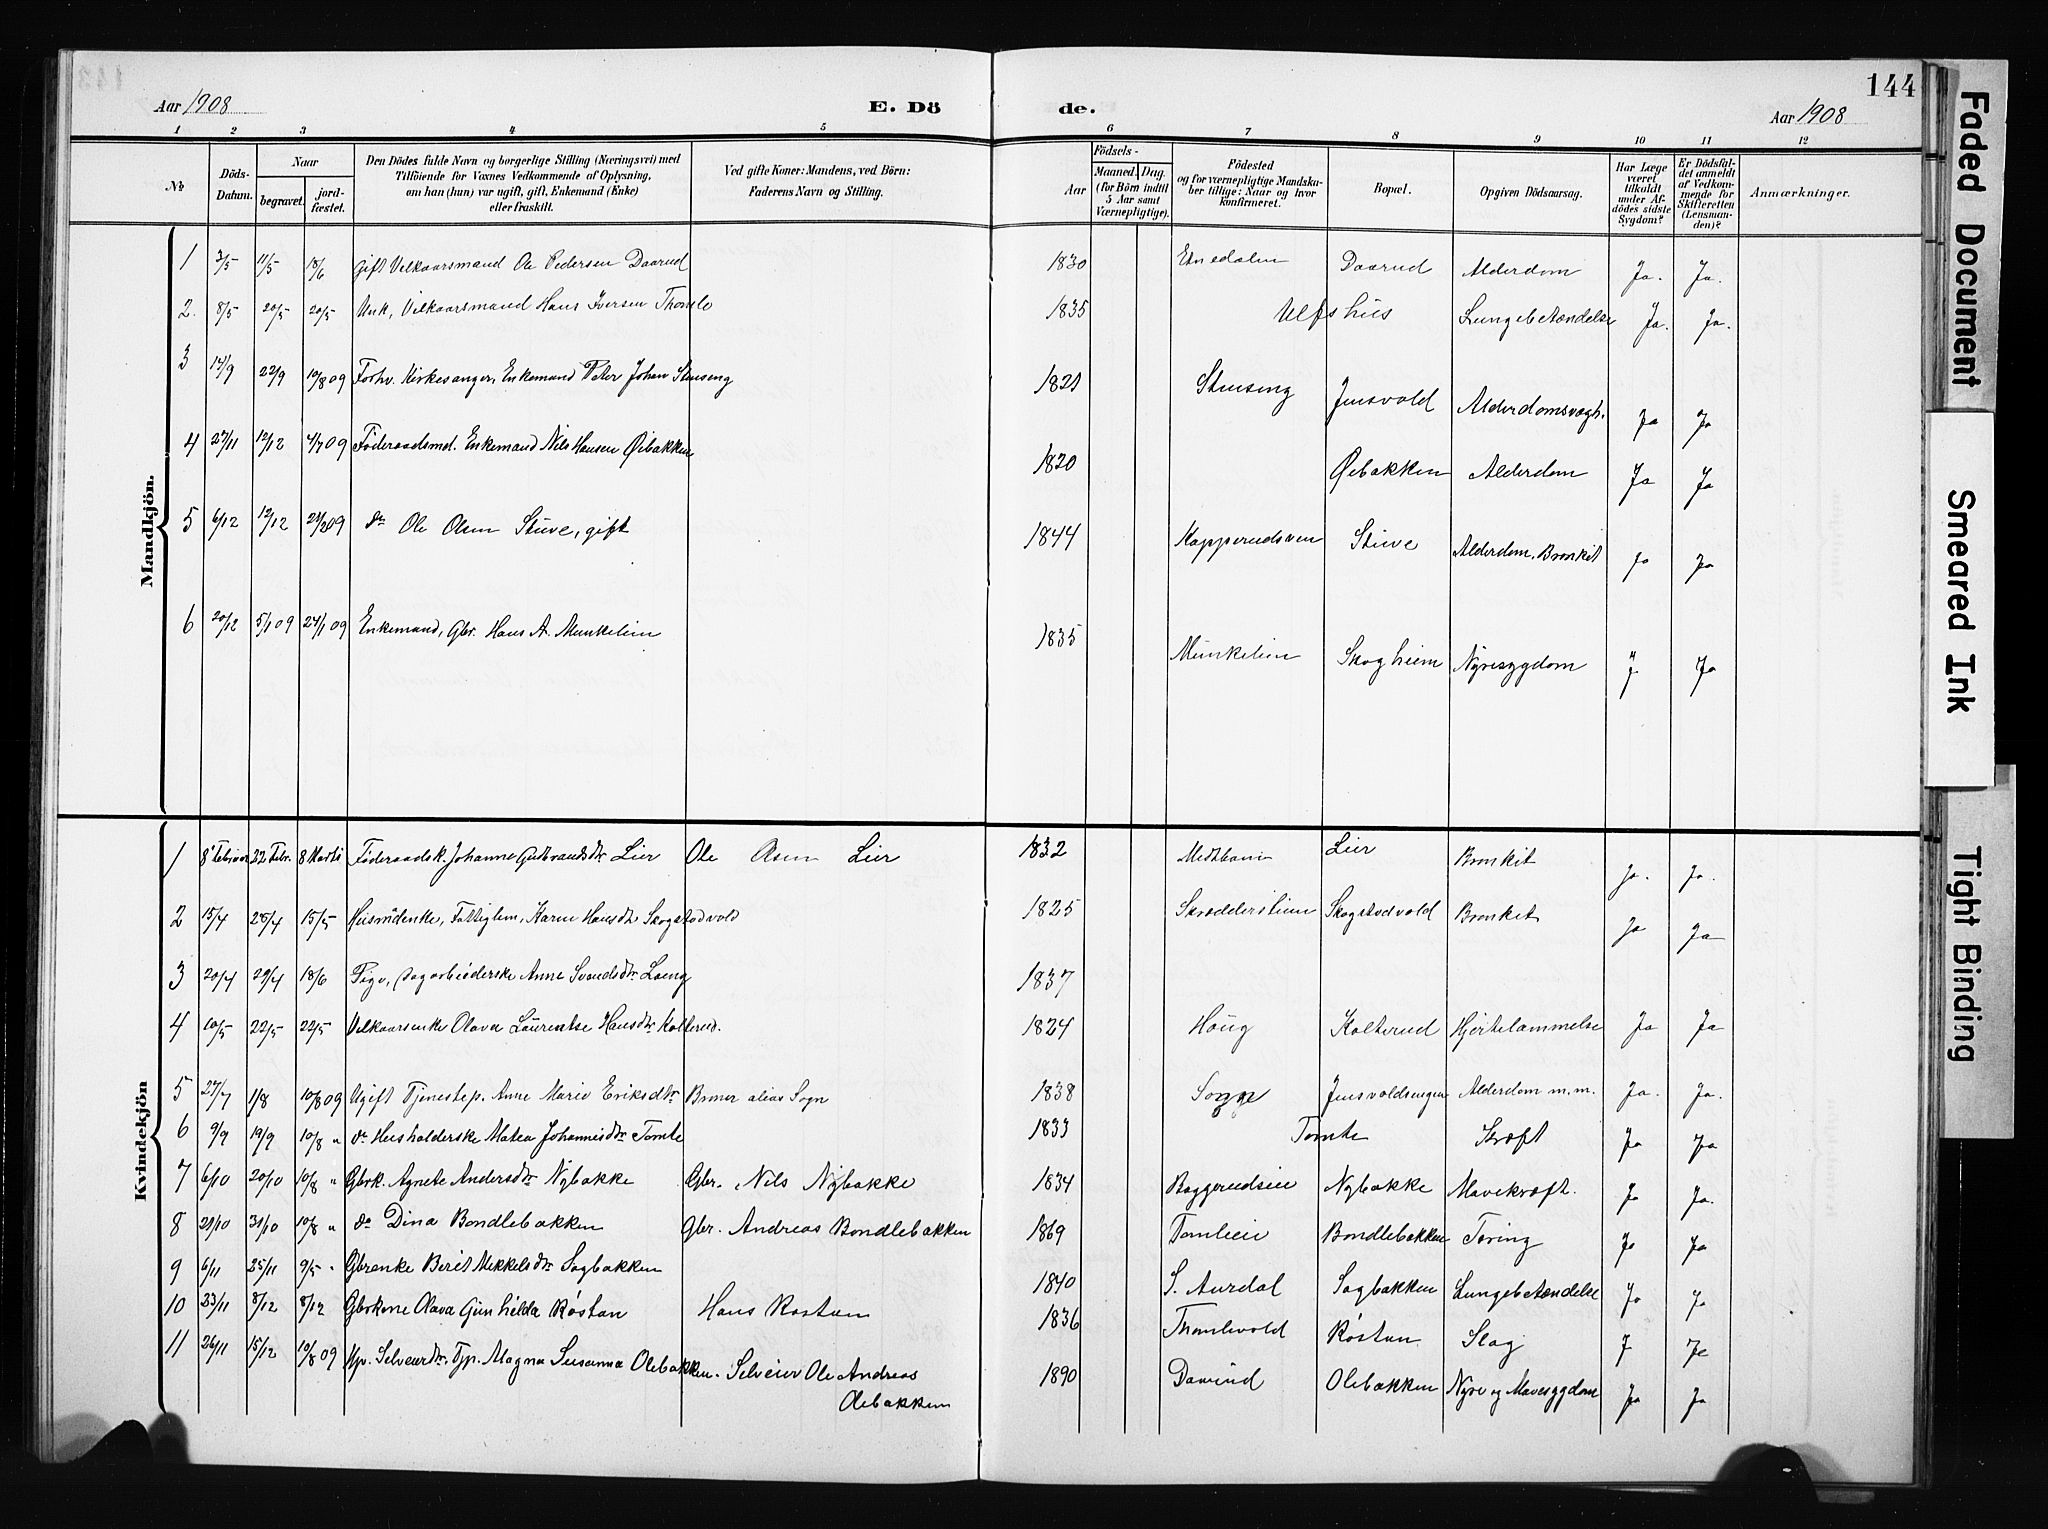 144
Aar 1908 E. Dö de. Aar 1908
1 2 3 4 5 6 7 8 9 10 11 12
№ Döds-Datum. Naar begravet. jordfæstet. Den Dödes fulde Navn og borgerlige Stilling (Næringsvei) med Tilföiende for Voxnes Vedkommende af Oplysning, om han (hun) var ugift, gift, Enkemand (Enke) eller fraskilt. Ved gifte Koner: Mandens, ved Börn: Faderens Navn og Stilling. Födsels- Aar Maaned. Dag. (for Börn indtil 5 Aar samt Værnepligtige). Födested og for værnepligtige Mandskaber tillige: Naar og hvor konfirmeret. Bopæl. Opgiven Dödsaarsag. Har Læge været tilkaldt under Afdödes sidste Sygdom? Er Dödsfaldet anmeldt af Vedkommende for Skifteretten (Lensmanden)? Anmærkninger.
Mandkjön.
1 3/5 11/5 18/6 Gift Vilkaarsmand Ole Pedersen Daarud 1830 Etnedalen Daarud Alderdom Ja. Ja.
2. 8/5 20/5 20/5 Unk, Vilkaarsmand Hans Iversen Thomle 1835 Ulfshus Lungebetændelse Ja. Ja.
3 14/9 22/9 10/8 09 Forhv. Kirkesanger, Enkemand Peter Johan Stenseng 1821 Stenseng Jensvold Alderdomsvagh. Ja Ja
4 27/11 12/12 4/7 09 Føderaadsmd. Enkemand Nils Hansen Øibakken 1820 Øibakken Alderdom Ja Ja
5 6/12 12/12 21/2 09 do Ole Olsen Stuve, gift 1844 Kopperudsven Stuve Alderdom. Bronkit Ja Ja
6 20/12 5/1 09 24/1 09 Enkemand, Gbr. Hans A. Munkelien 1835 Munkelien Skogheim Nyresygdom Ja
Kvindekjön
1 8' Februar 22 Febr. 8 Marts Føderaadsk. Johanne Gulbrandsdtr Lier Ole Olsen Lier 1832 Lier Bronkit Ja. Ja.
2 15/4 25/4 15/5 Husmdenke, Fattiglem, Karen Hansdtr Skogstadvold 1825 Skrødderstuen Skogstadvold Bronkit Ja Ja
3 20/4 29/4 18/6 Pige, Dagarbeiderske Anne Svendsdtr Loeng 1837
4 10/5 22/5 22/5 Vilkaarsenke Olava Laurentse Hansdtr Kolterud. 1824 Houg Kolterud Hjertelammelse Ja Ja
5 27/7 1/8 10/8 09 Ugift Tjenestep. Anne Marie Eriksdtr Broner alias Sogn 1838 Sogn Jensvoldsengen Alderdom m.m. Ja. Ja.
6 9/9 19/9 10/8 " do Husholderske Matea Johannesdtr Tomte 1833 Tomte Kræft Ja Ja
7 6/10 20/10 10/8 " Gbrk. Agnete Andersdtr Nybakke Gbr. Nils Nybakke 1834 Baggerudseie Nybakke Mavekræft. Ja Ja.
8 21/10 31/10 10/8 " do Dina Bondlebakken Gbr. Andreas Bondlebakken 1869 Tomleeie Bondlebakken Tæring Ja Ja
9 6/11 25/11 9/5 " Gbrenke Berit Mikkelsdtr Sagbakken 1840 S. Aurdal Sagbakken Lungebetændelse Ja Ja
10 23/11 8/12 8/12 Gbrkone Olava Gunhilda Røstøn Hans Røstøn 1836 Thomlevold Røstøn Slag Ja
11 26/11 15/12 10/8 09 Selveierdtr. Tjp. Magna Susanna Olebakken. Selveier Ole Andreas Olebakken 1890 Daarud Olebakken Nyre og Mavesygdom Ja Ja
Faded Document
Smeared Ink
Tight Binding